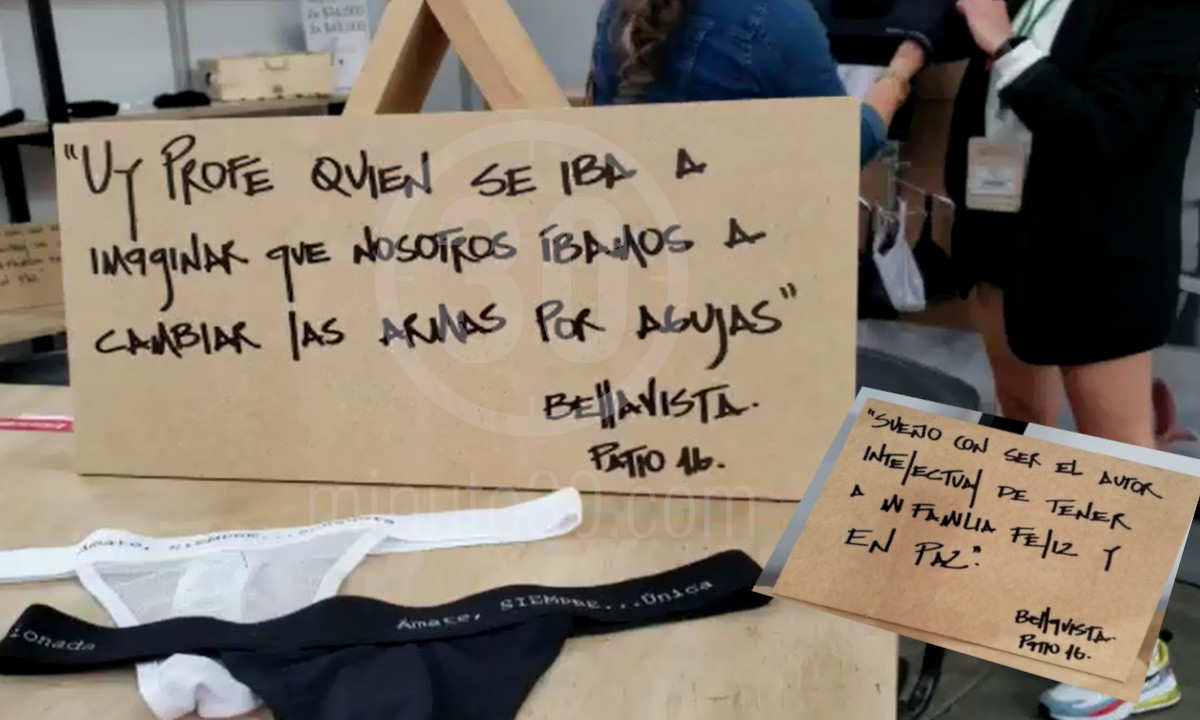 "UY PROFE QUIEN SE IBA A
IMAGINAR QUE NOSOTROS ÍBAMOS A
CAMBIAR LAS ARMAS POR AGUJAS"
BELLAVISTA.
PATIO 16.
"SUEÑO CON SER EL AUTOR
INTELECTUAL DE TENER
A MI FAMILIA FELIZ Y
EN PAZ."
BELLAVISTA.
PATIO 16.
30
minuto30.com
Ámate, SIEMPRE...
Ámate, SIEMPRE...Única